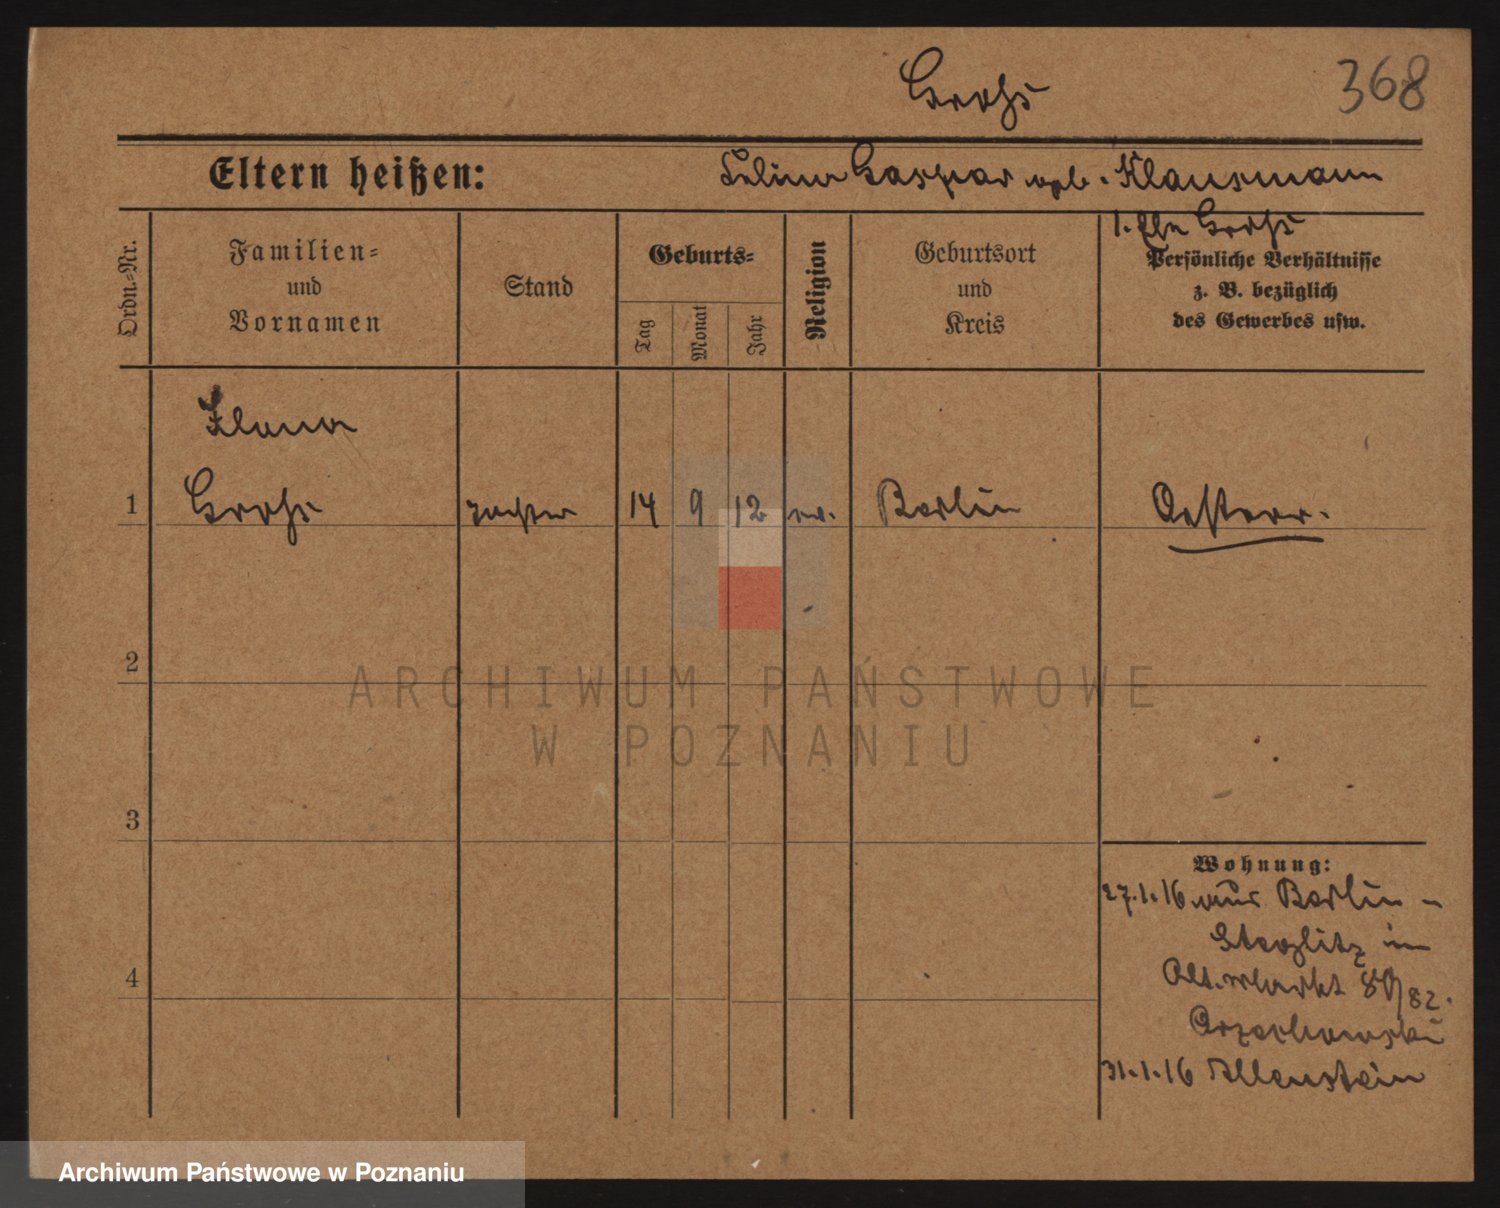 Grohs
368
Eltern heißen:
Gaspar geb. Klausmann
1. Ehe Grohs
Ordn.-Nr.
Familien-
und
Vornamen
Stand
Geburts-
Tag
Monat
Jahr
Religion
Geburtsort
und
Kreis
Persönliche Verhältnisse
z. B. bezüglich
des Gewerbes usw.
1
Grohs
Tochter
14
9
12
ev.
Berlin
Oesterr.
2
3
4
ARCHIWUM PAŃSTWOWE
W POZNANIU
Wohnung:
27.1.16 aus Berlin -
Steglitz in
Alt. Markt 80/82.
Orzechowski
31.1.16 Allenstein
Archiwum Państwowe w Poznaniu